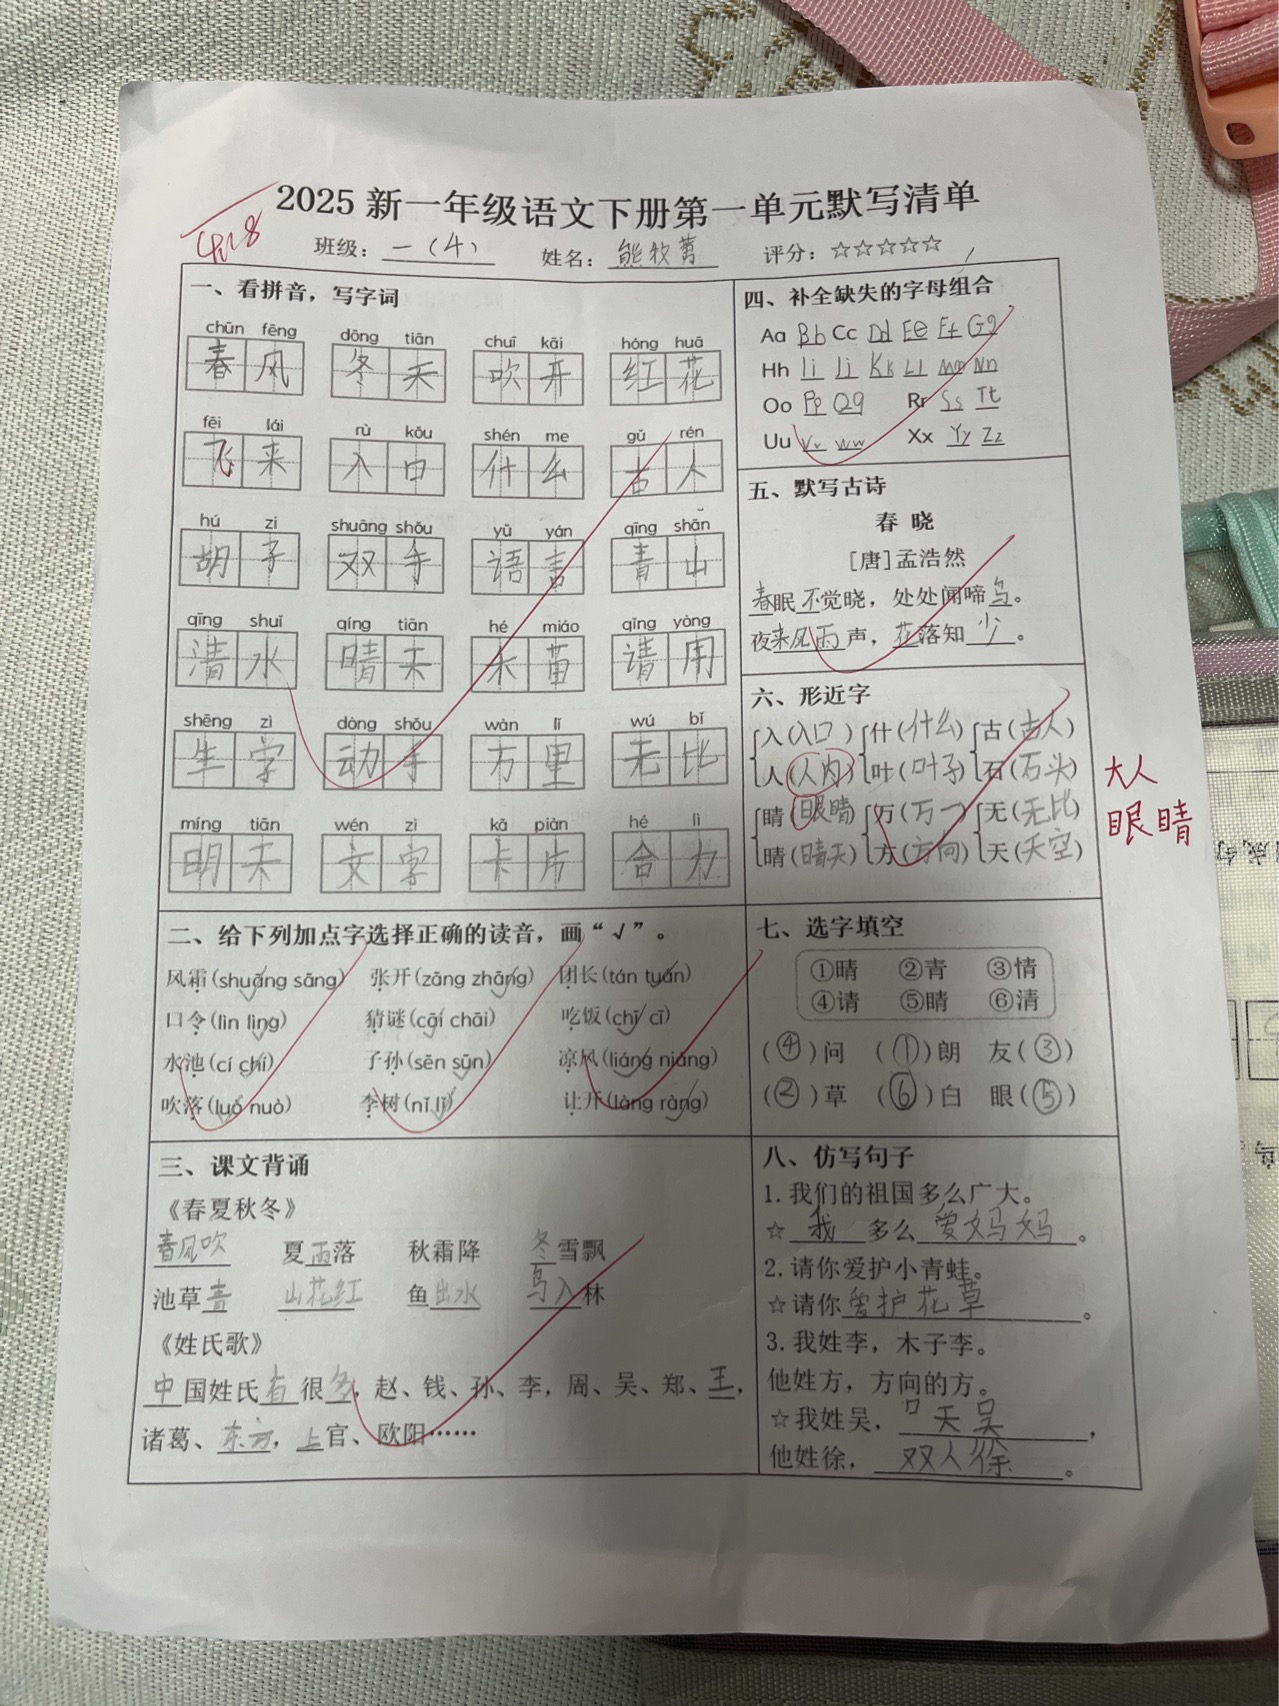 2025新一年级语文下册第一单元默写清单
班级：一（4） 姓名：熊牧菁 评分：☆☆☆☆☆
一、看拼音，写字词
chūn fēng dōng tiān chuī kāi hóng huā
春风 冬天 吹开 红花
fēi lái rù kǒu shén me gǔ rén
飞来 入口 什么 古人
hú zi shuāng shǒu yǔ yán qīng shān
胡子 双手 语言 青山
qīng shuǐ qíng tiān hé miáo qǐng yòng
清水 晴天 禾苗 请用
shēng zì dòng shǒu wàn lǐ wú bǐ
生字 动手 万里 无比
míng tiān wén zì kǎ piàn hé lì
明天 文字 卡片 合力
二、给下列加点字选择正确的读音，画“√”。
风霜(shuāng sāng) 张开(zāng zhāng) 团长(tán tuán)
口令(lìn lìng) 猜谜(cāi chāi) 吃饭(chī cī)
水池(cí chí) 子孙(sēn sūn) 凉风(liáng niáng)
吹落(luò nuò) 李树(nǐ lǐ) 让开(làng ràng)
三、课文背诵
《春夏秋冬》
春风吹 夏雨落 秋霜降 冬雪飘
池草青 山花红 鱼出水 鸟入林
《姓氏歌》
中国姓氏有很多，赵、钱、孙、李，周、吴、郑、王，
诸葛、东方，上官、欧阳……
四、补全缺失的字母组合
Aa Bb Cc Dd Ee Ff Gg
Hh Ii Jj Kk Ll Mm Nn
Oo Pp Qq Rr Ss Tt
Uu Vv Ww Xx Yy Zz
五、默写古诗
春晓
[唐]孟浩然
春眠不觉晓，处处闻啼鸟。
夜来风雨声，花落知少。
六、形近字
入(入口) 什(什么) 古(古人)
人(人内) 叶(叶子) 石(石头)
大人
睛(眼睛) 万(万一) 无(无比)
眼睛
晴(晴天) 方(方向) 天(天空)
七、选字填空
①晴 ②青 ③情
④请 ⑤睛 ⑥清
(④)问 (①)朗 友(③)
(②)草 (⑥)白 眼(⑤)
八、仿写句子
1.我们的祖国多么广大。
☆我多么爱妈妈。
2.请你爱护小青蛙。
☆请你爱护花草。
3.我姓李，木子李。
他姓方，方向的方。
☆我姓吴，口天吴，
他姓徐，双人徐。